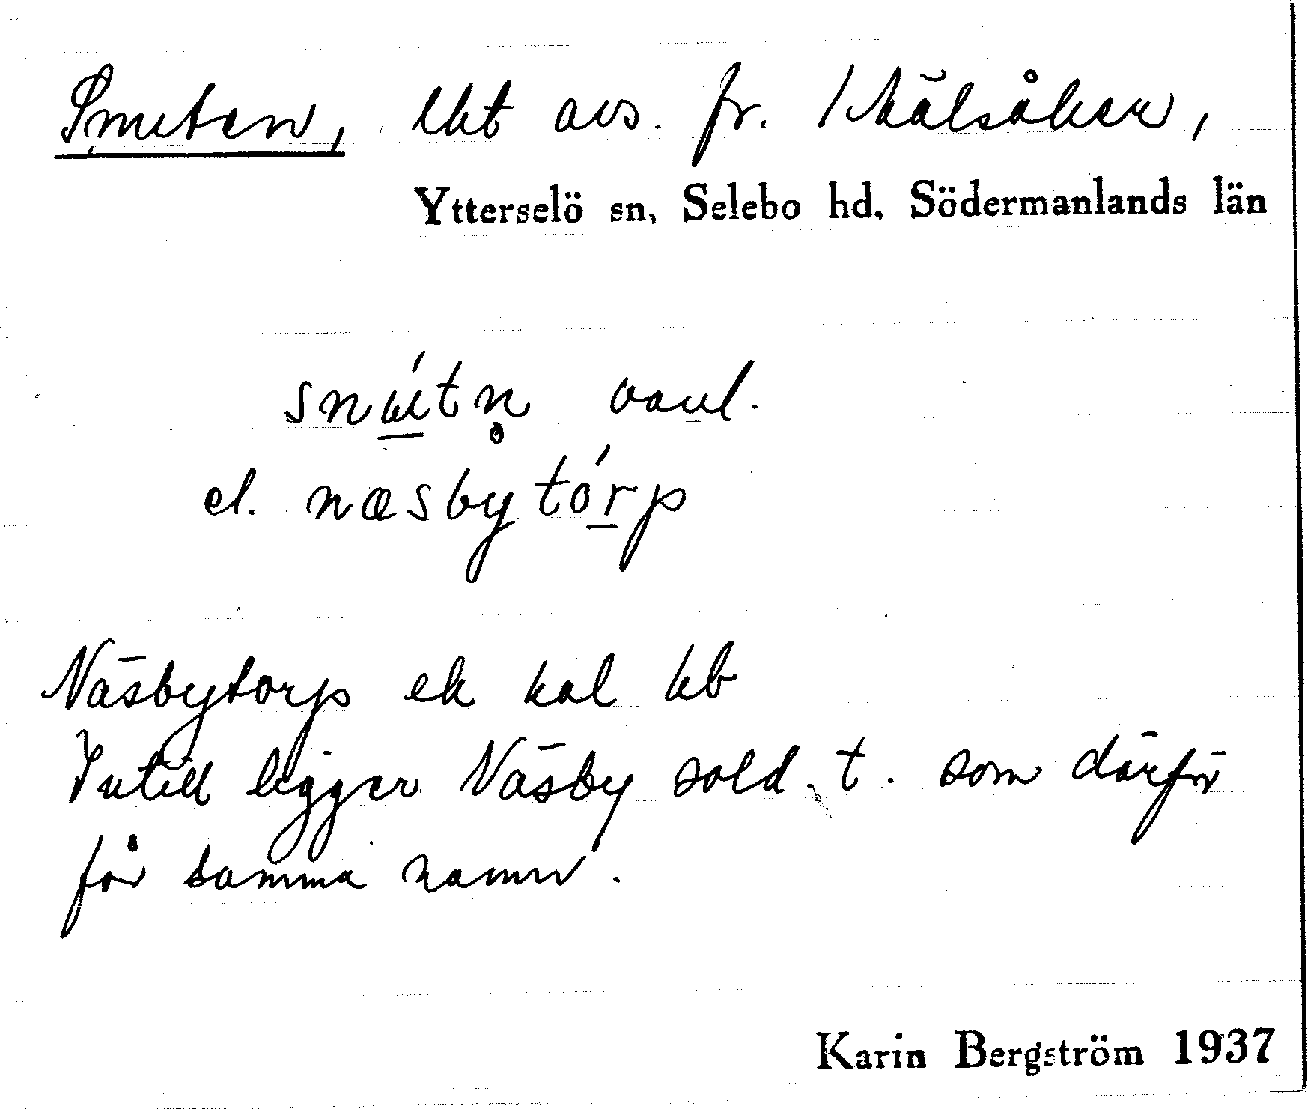 Snuten, lht avs. fr. Kälsåker,
Ytterselö sn, Selebo hd. Södermanlands län
snútn̥ vanl.
el. næsbytórp
Näsbytorp ek kal kb
Intill ligger Näsby sold. t. som därför
får samma namn.
Karin Bergström 1937